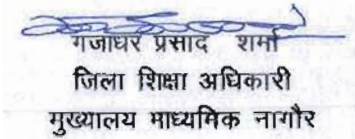 गजाधर प्रसाद शर्मा
जिला शिक्षा अधिकारी
मुख्यालय माध्यमिक नागौर